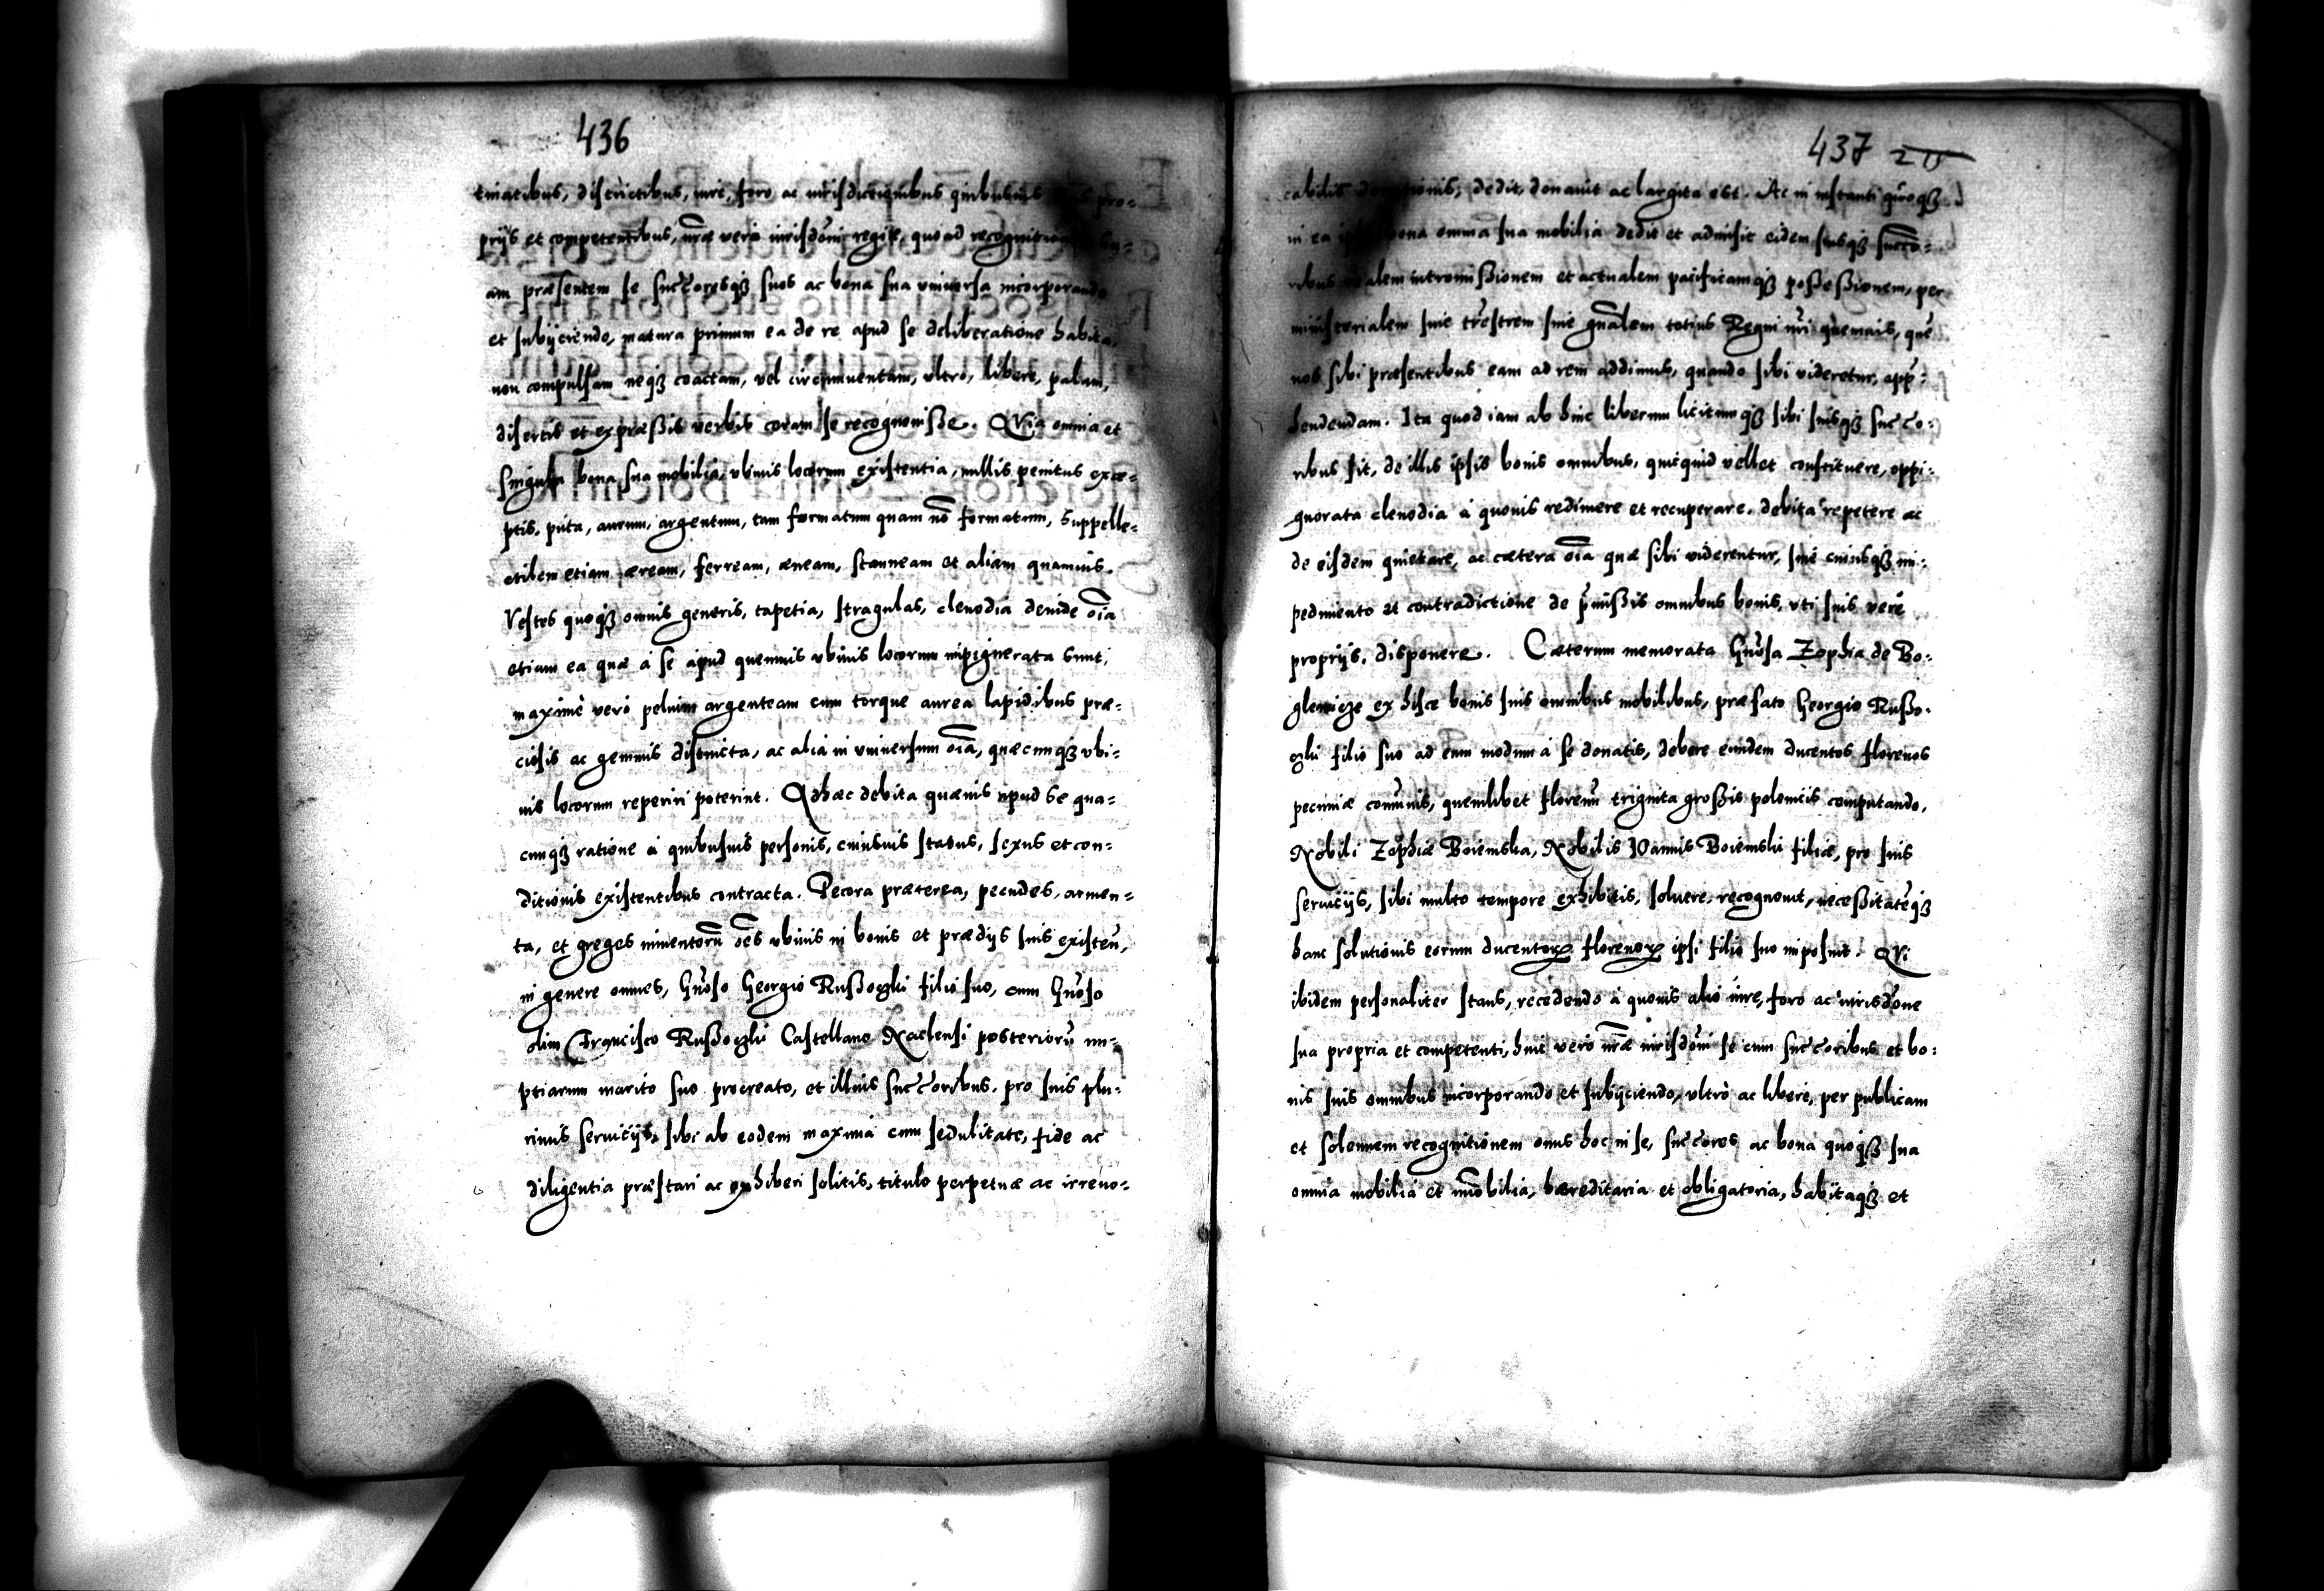 436
tinatibus, districtibus, iure, foro ac iurisdictionibus quibusuis pro=
prijs et competentibus, nr̃æ vero iurisdõni regiæ, quoad recognitionem
am præsentem se succ̃oresq3 suos ac bona sua vniuersa incorporando
et subijciendo, matura primum ea de re apud se deliberatione habita,
non compulsam neq3 coactam, vel circumuentam, vltro, libere, palam,
disertis et expræßis verbis coram se recognouiße. Quia omnia et
singula bona sua mobilia, vbiuis locorum existentia, nullis penitus exce=
ptis, puta, aurum, argentum, tam formatum quam nõ formatum, Suppelle=
ctilem etiam æream, ferream, æneam, stanneam et aliam quamuis.
Vestes quoq3 omnis generis, tapetia, stragulas, clenodia deinde oĩa
etiam ea quæ à se apud quemuis vbiuis locorum inpignerata sunt,
maximè verò peluim argenteam cum torque aurea lapidibus præ=
ciosis ac gemmis distincta, ac alia in vniuersum oĩa, quæcunq3 vbi=
uis locorum reperiri poterint. Adhæc debita quæuis apud se qua=
cunq3 ratione à quibusuis personis, cuiusuis status, sexus et con=
ditionis existentibus contracta. Pecora præterea, pecudes, armen=
ta, et greges iumentorũ oẽs vbiuis in bonis et prædijs suis existeñ,
in genere omnes, Gñoso Georgio Rußoczki filio suo, cum Gñoso
olim Francisco Rußoczki Castellano Naclensi posteriorũ nu=
ptiarum marito suo procreato, et illius succ̃oribus, pro suis plu=
rimis seruicijs, sibi ab eodem maxima cum sedulitate, fide ac
diligentia præstari ac exhiberi solitis, titulo perpetuæ ac irreuo=
437
cabilis donationis, dedit, donauit ac largita est. Ac in instanti quoq3
in ea bona omnia sua mobilia dedit et admisit eidem suisq3 succo=
ribus realem intromißionem et actualem pacificamq3 poßeßionem, per
ministerialem siue tr̃estrem siue gñalem totius Regni nr̃i quemuis, quẽ
nos sibi præsentibus eam ad rem addimus, quando sibi videretur, app̃=
hendendam. Ita quod iam ab hinc liberum licitumq3 sibi suisq3 succ̃o=
ribus sit, de illis ipsis bonis omnibus, quicquid vellet constituere, oppi=
gnorata clenodia à quouis redimere et recuperare, debita repetere ac
de eisdem quietare, ac cætera oĩa quæ sibi viderentur, sine cuiusq3 im=
pedimento et contradictione de p̃mißis omnibus bonis, vti suis verè
proprijs, disponere. Cæterum memorata Gñosa Zophia de Bo=
glewicze ex hisce bonis suis omnibus mobilibus, præfato Georgio Rußo=
czki filio suo ad eum modum à se donatis, debere eundem ducentos florenos
pecuniæ com̃unis, quemlibet florenũ triginta großis polonicis computando,
Nobili Zophiæ Boiemska, Nobilis Ioannis Boiemski filiæ, pro suis
seruicijs, sibi multo tempore exhibitis, soluere, recognouit, neceßitatẽq3
hanc solutionis eorum ducentoꝝ florenoꝝ ipsi filio suo imposuit. Qui
ibidem personaliter stans, recedendo à quouis alio iure, foro ac iurisdõne
sua propria et competenti, huic vero nr̃æ iurisdõni se cum succ̃oribus et bo=
nis suis omnibus incorporando et subijciendo, vltrò ac liberè, per publicam
et solennem recognitionem onus hoc in se, succ̃ores ac bona quoq3 sua
omnia mobilia et im̃obilia, hæreditaria et obligatoria, habitaq3 et